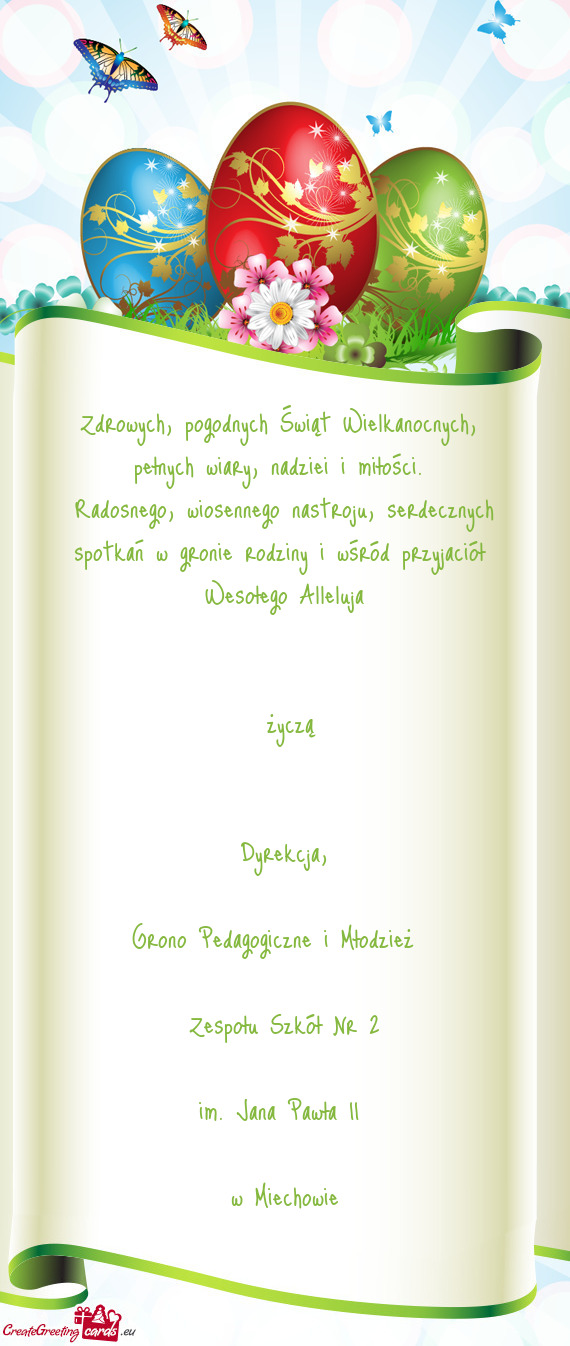 Zdrowych, pogodnych Świąt Wielkanocnych,
pełnych wiary, nadziei i miłości.
Radosnego, wiosennego nastroju, serdecznych
spotkań w gronie rodziny i wśród przyjaciół
Wesołego Alleluja
życzą
Dyrekcja,
Grono Pedagogiczne i Młodzież
Zespołu Szkół Nr 2
im. Jana Pawła II
w Miechowie
CreateGreeting cards .eu